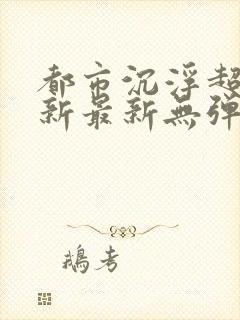 都市沉浮超
新最新無弹
鵝考